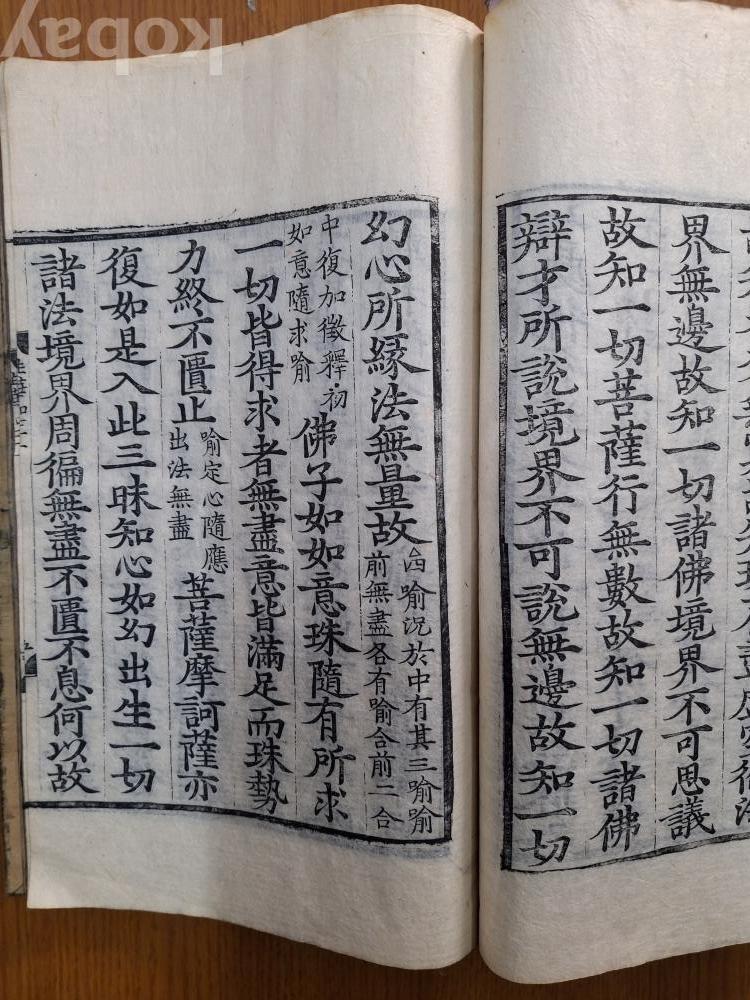 界無邊故知一切諸佛境界不可思議
故知一切菩薩行無數故知一切諸佛
辯才所說境界不可說無邊故知一切
幻心所緣法無量故
喻況於中有其三喻喻
前無盡各有喻合前二合
中復加徵釋初
如意隨求喻
佛子如如意珠隨有所求
一切皆得求者無盡意皆滿足而珠勢
力終不匱止
喻定心隨應
出法無盡
菩薩摩訶薩亦
復如是入此三昧知心如幻出生一切
諸法境界周徧無盡不匱不息何以故
kobay